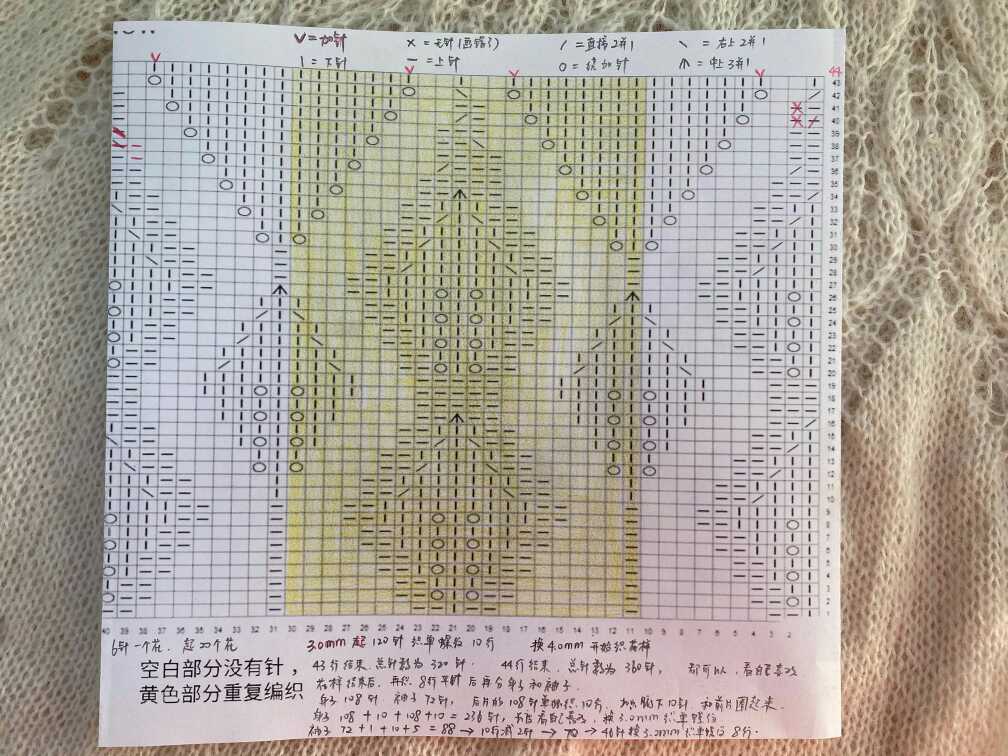 V=加针 ×=无针(画错了) /=直接2并1 \=右上2并1
|=下针 -=上针 O=绕加针 ⋀=中上3并1
V V V V 44
43
42
41
40
39
38
37
36
35
34
33
32
31
30
29
28
27
26
25
24
23
22
21
20
19
18
17
16
15
14
13
12
11
10
9
8
7
6
5
4
3
2
1
40 39 38 37 36 35 34 33 32 31 30 29 28 27 26 25 24 23 22 21 20 19 18 17 16 15 14 13 12 11 10 9 8 7 6 5 4 3 2
6针一个花、起20个花 3.0mm起120针织单螺纹10行 换4.0mm开始织花样
空白部分没有针, 43行结束、总针数为320针. 44行结束、总针数为360针, 都可以、看自己喜欢
黄色部分重复编织 花样结束后、再织8行平针后再分身子和袖子.
身子108针 袖子72针, 后片的108针单独织10行, 加腋下10针 和前片圈起来.
身子108+10+108+10=236针, 长度看自己喜欢, 换3.0mm织单螺纹
袖子72+1+10+5=88→10行减2针→70→46针换3.0mm织单螺纹8行.